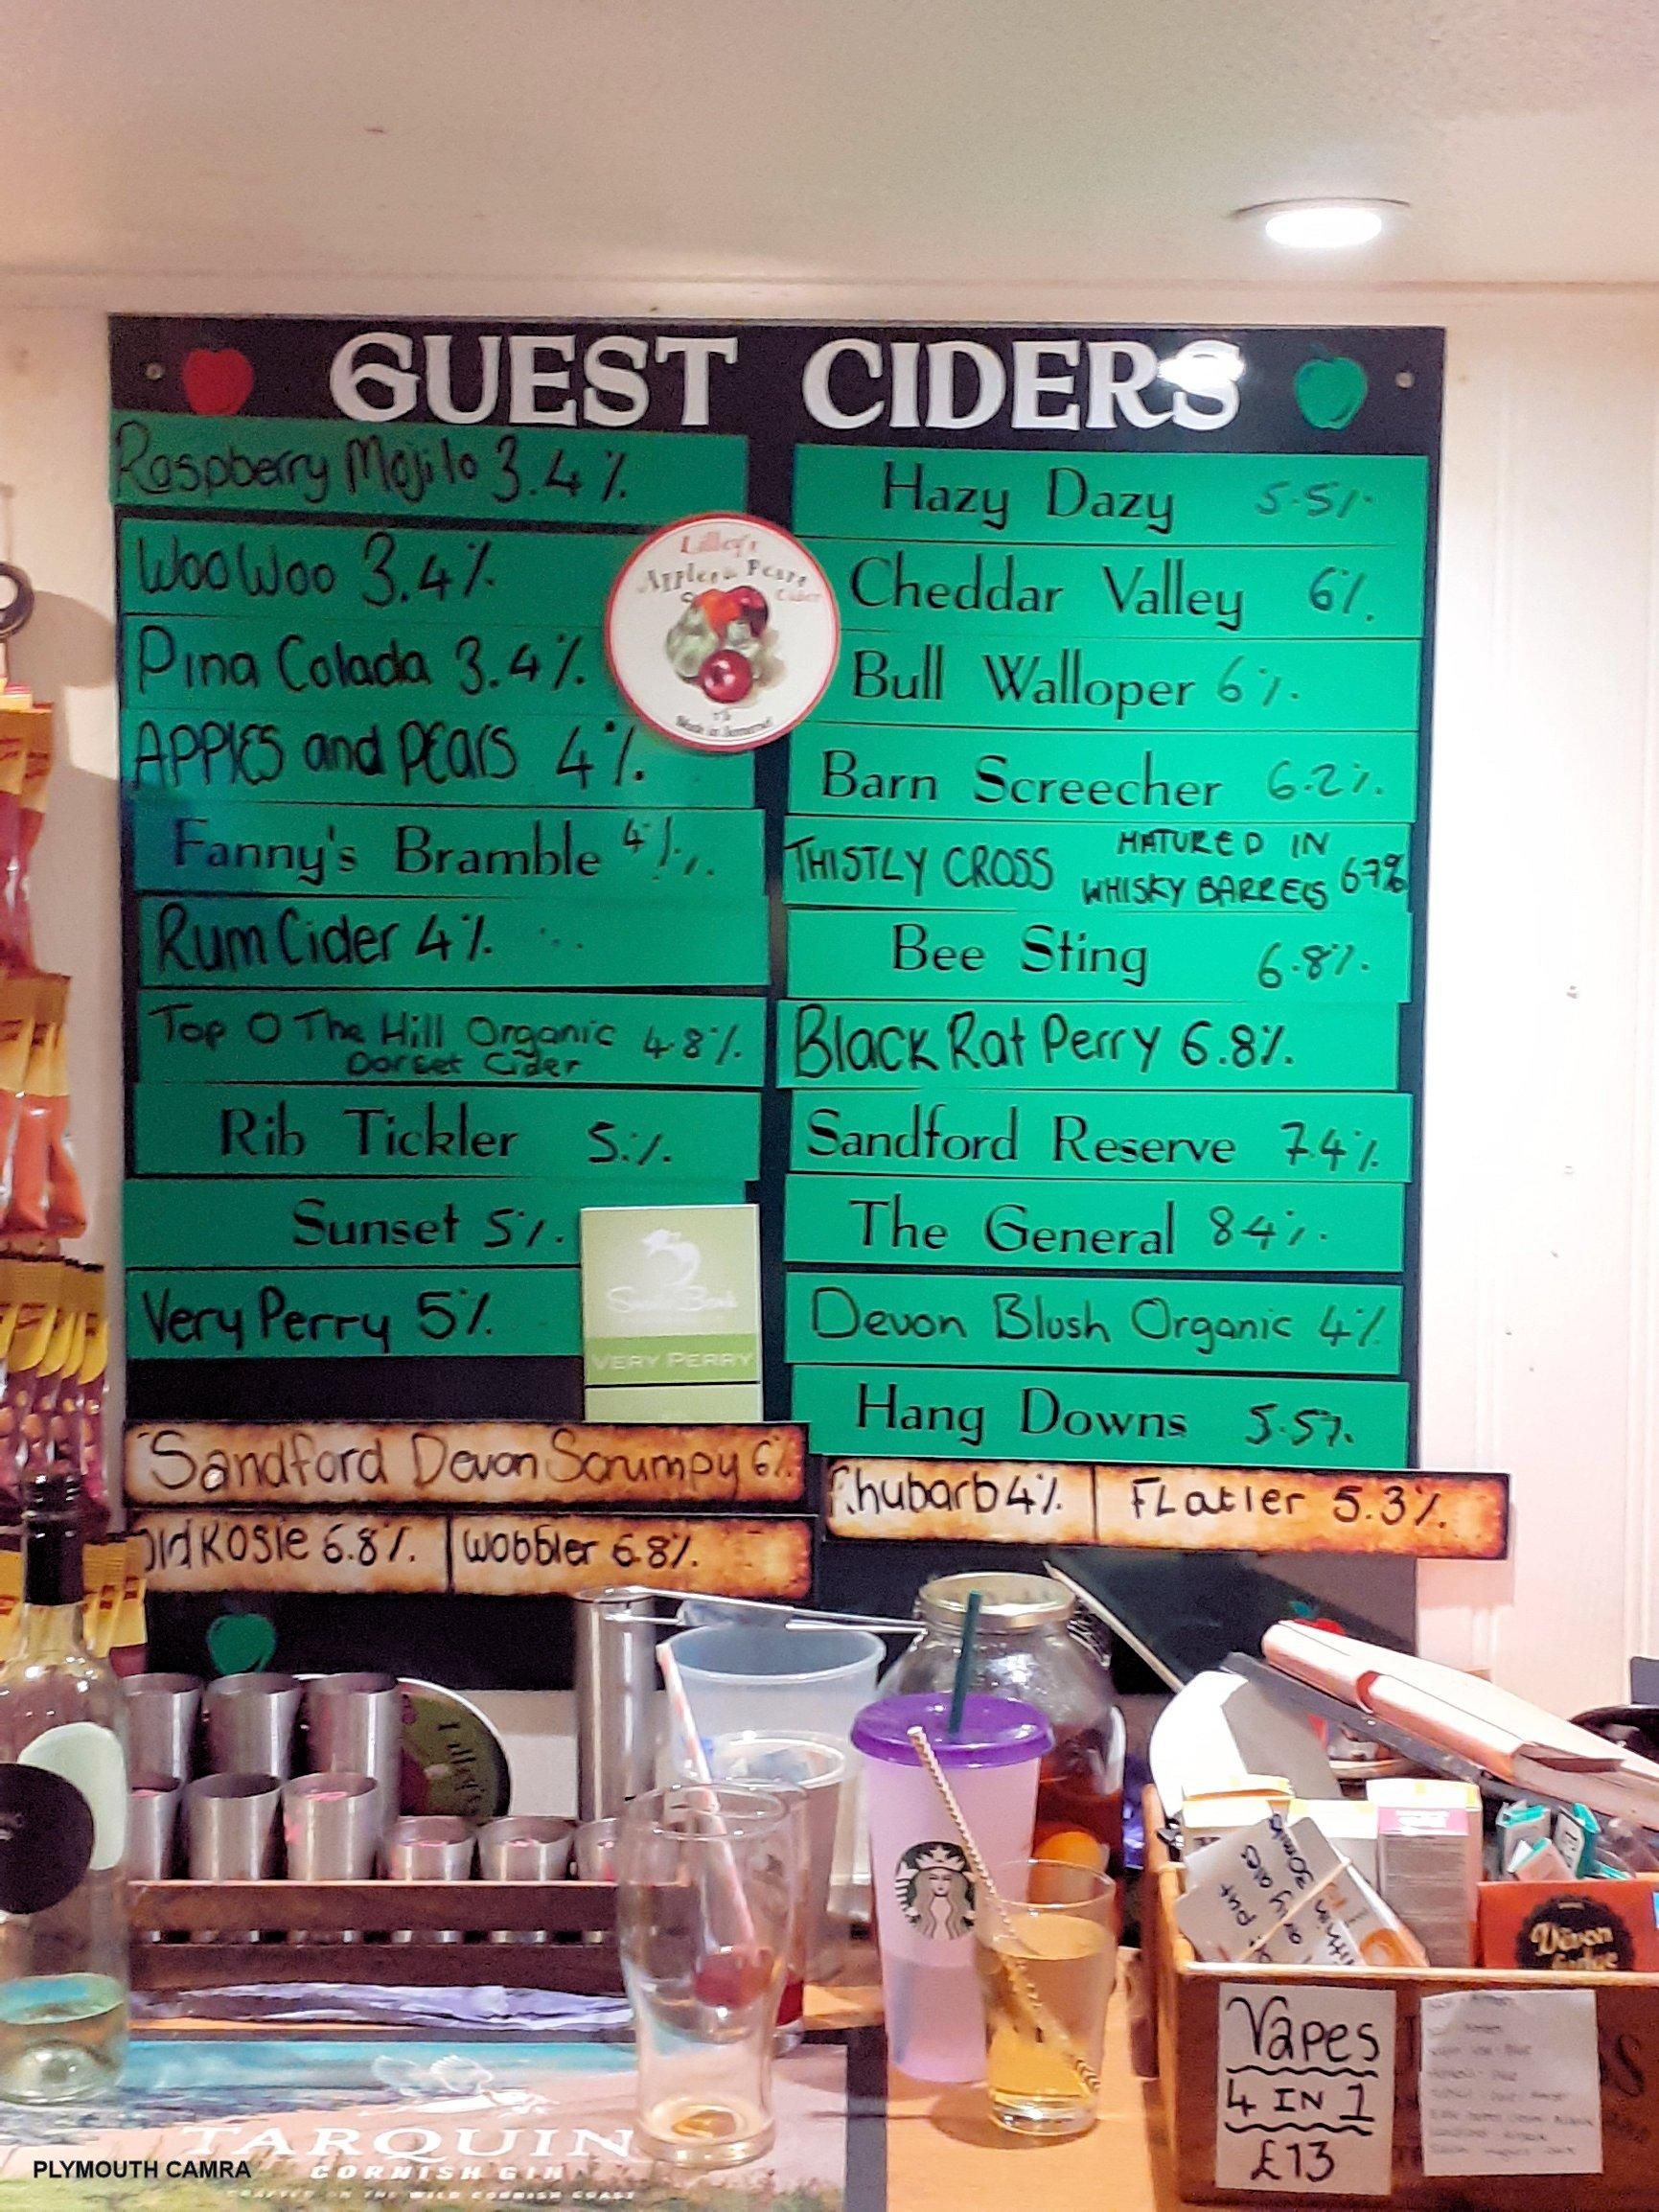 GUEST CIDERS
Raspberry Mojito 3.4%
Woo Woo 3.4%
Pina Colada 3.4%
APPLES and PEARS 4%
Fanny's Bramble 4%
Rum Cider 4%
Top O The Hill Organic 4.8%
Dorset Cider
Rib Tickler 5.%
Sunset 5%
Very Perry 5%
Lilley's
Apples & Pears
Cider
Made in Somerset
VERY PERRY
Hazy Dazy 5.5%
Cheddar Valley 6%
Bull Walloper 6%
Barn Screecher 6.2%
THISTLY CROSS MATURED IN
WHISKY BARRELS 6.7%
Bee Sting 6.8%
Black Rat Perry 6.8%
Sandford Reserve 7.4%
The General 84%
Devon Blush Organic 4%
Hang Downs 5.5%
Sandford Devon Scrumpy 6%
Old Rosie 6.8% Wobbler 6.8%
Rhubarb 4% FLatler 5.3%
Lilley's
Devon
Vapes
4 IN 1
£13
TARQUIN
CORNISH GIN
CRAFTED ON THE WILD CORNISH COAST
PLYMOUTH CAMRA